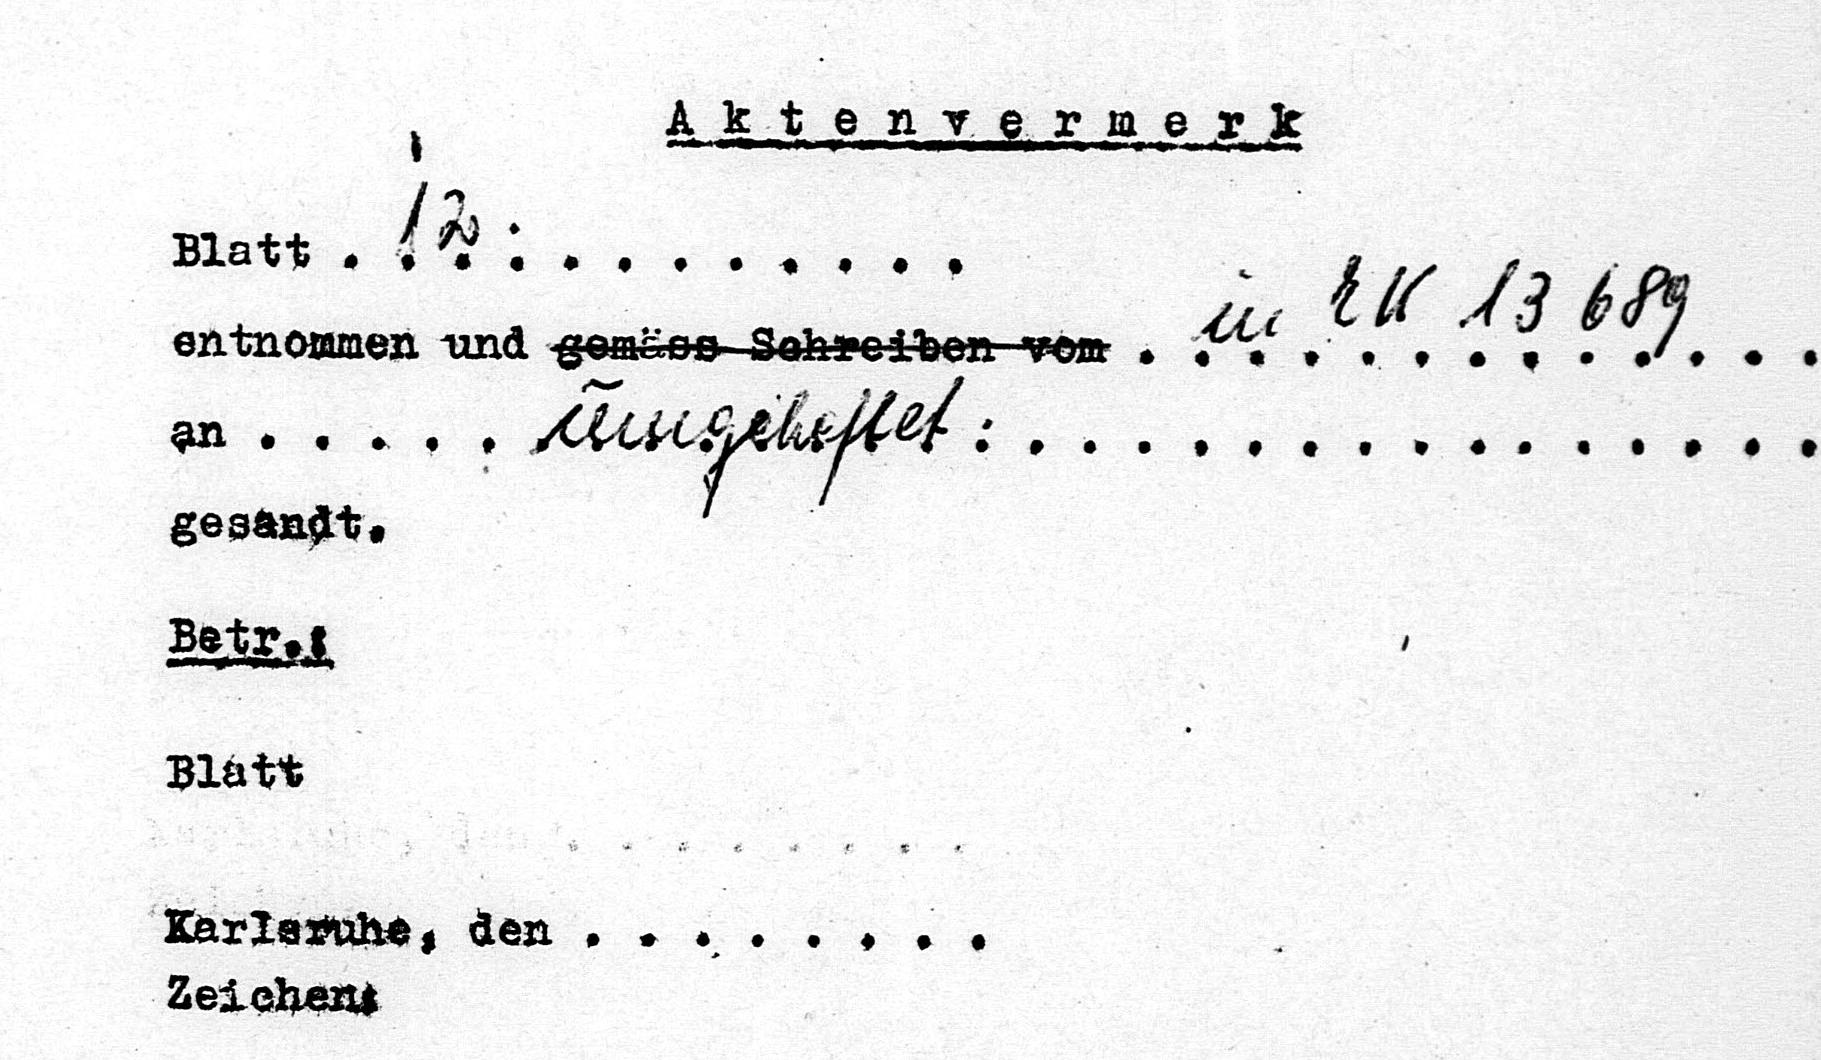 Aktenvermerk
Blatt . 12 . . . . . . . . . .
entnommen und gemäss Schreiben vom . in EK 13 689 . . .
an . . . . . umgeheftet . . . . . . . . . . . . . . . .
gesandt.
Betr.:
Blatt
Karlsruhe, den . . . . . . . .
Zeichen: